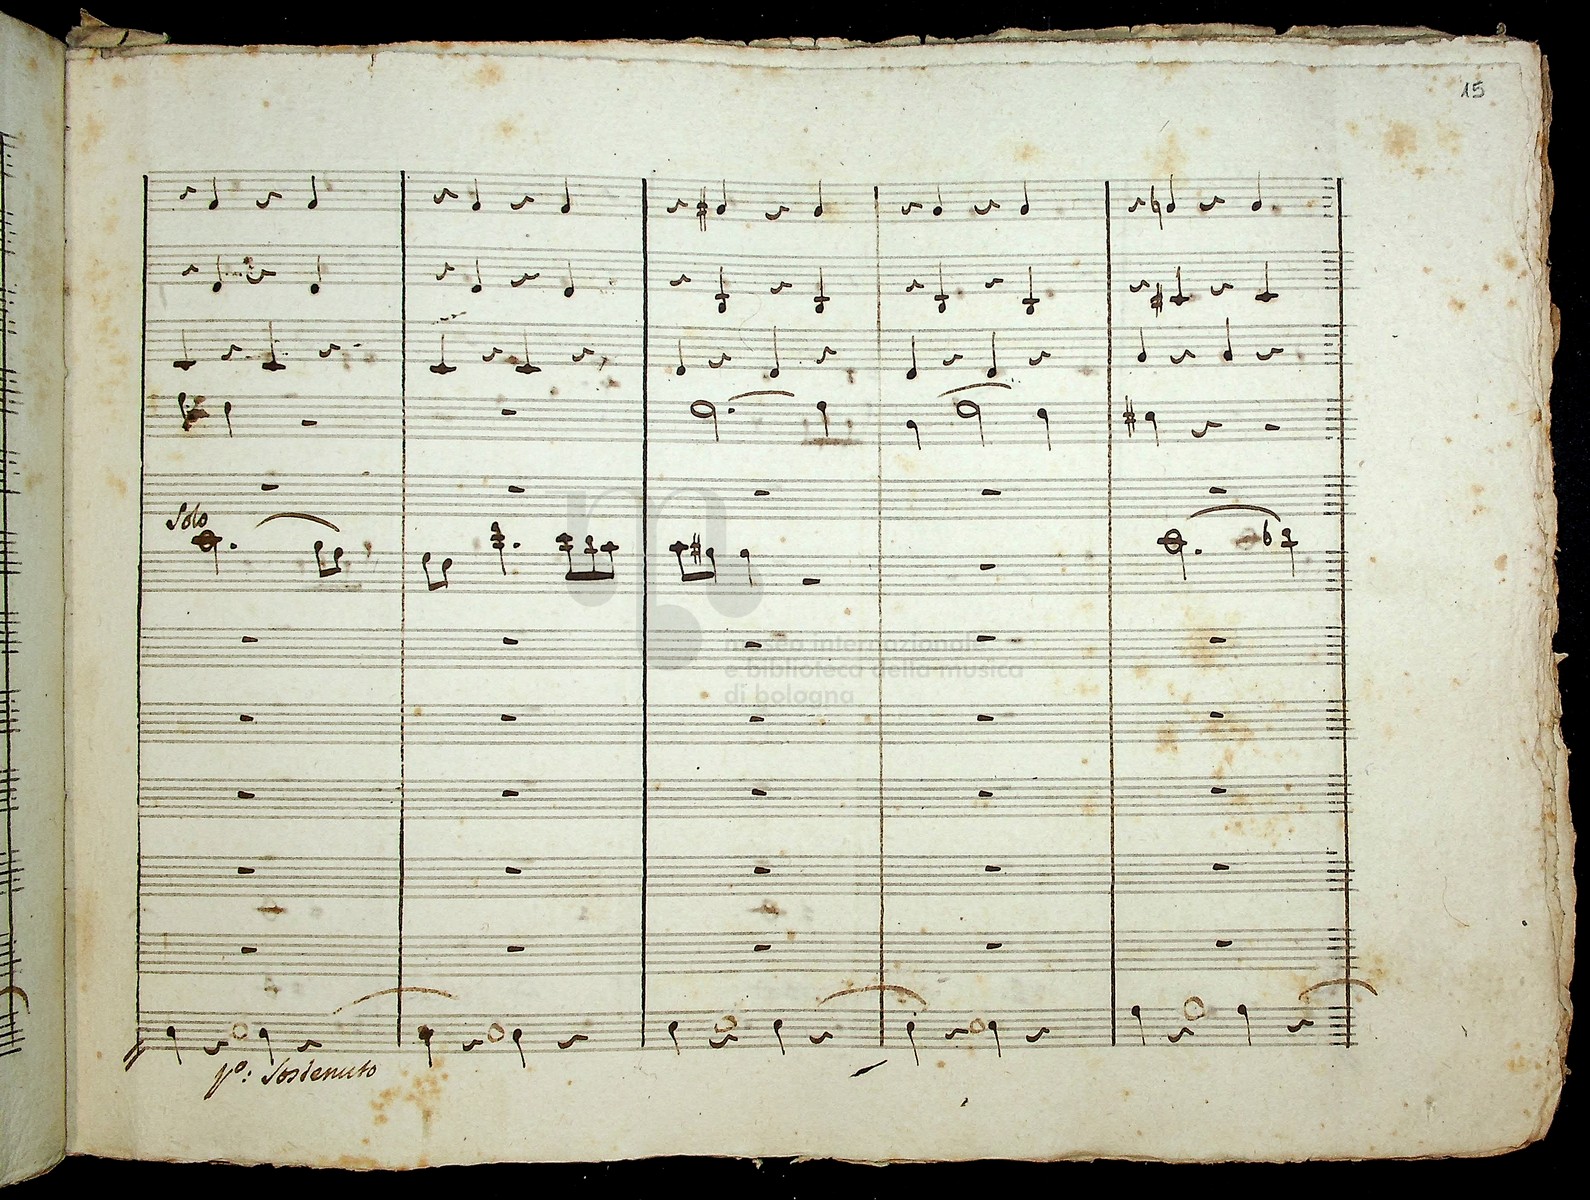 15
Solo
museo internazionale
e biblioteca della musica
di bologna
po: Sostenuto